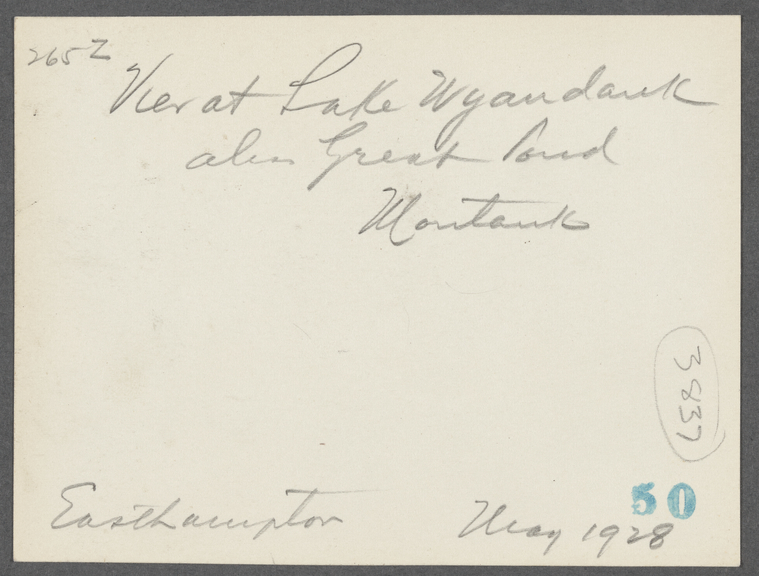 265Z
View at Lake Wyandank
alias Great Pond
Montauk
3837
50
Easthampton May 1928